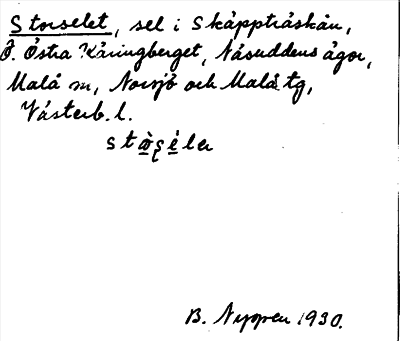 Storselet, sel i Skäppträskån,
Ö. Östra Käringberget, Näsuddens ägor,
Malå sn, Norsjö och Malå tg,
Västerb. l.
stòșéle
B. Nyppen 1930.